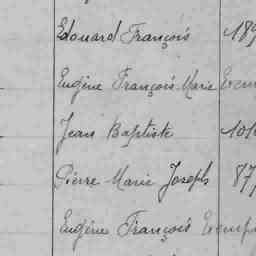 Edouard François 189
Eugène François-Marie
Jean Baptiste 101
Pierre Marie Joseph 87
Eugène François